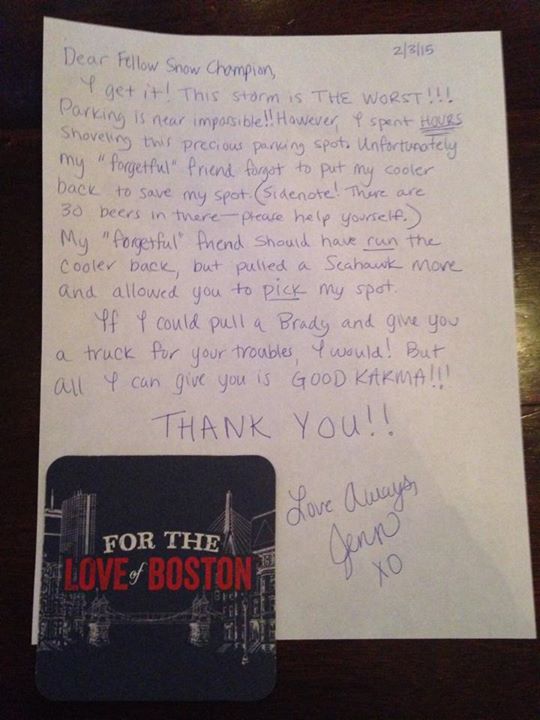 2/3/15
Dear Fellow Snow Champion,
I get it! This storm is THE WORST!!!
Parking is near impossible!! However, I spent HOURS
shoveling this precious parking spot. Unfortunately
my "forgetful" friend forgot to put my cooler
back to save my spot. (Sidenote! There are
30 beers in there—please help yourself.)
My "forgetful" friend should have run the
cooler back, but pulled a Seahawk move
and allowed you to pick my spot.
If I could pull a Brady and give you
a truck for your troubles, I would! But
all I can give you is GOOD KARMA!!!
THANK YOU!!
Love Always,
Jenn
XO
FOR THE
LOVE of BOSTON